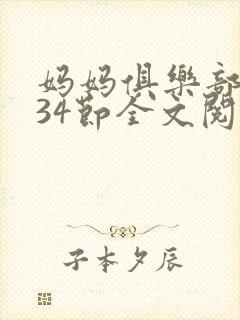 妈妈俱樂部
34節全文閱
子本夕辰